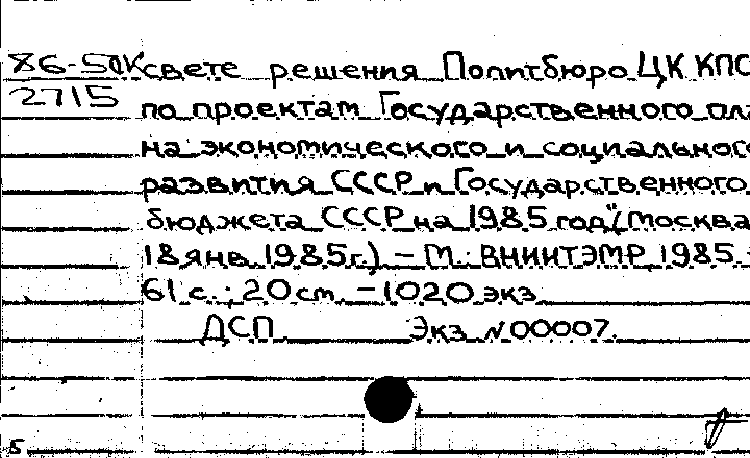 86-5ДК свете решения Политбюро ЦК КПС
2715 по проектам Государственного пла
на экономического и социального
развития СССР и Государственного
бюджета СССР на 1985 год" (Москва
18 янв. 1985г.) – М.: ВНИИТЭМР, 1985. –
61 с.; 20 см. – 1020 экз.
ДСП. Экз. N00007.
5